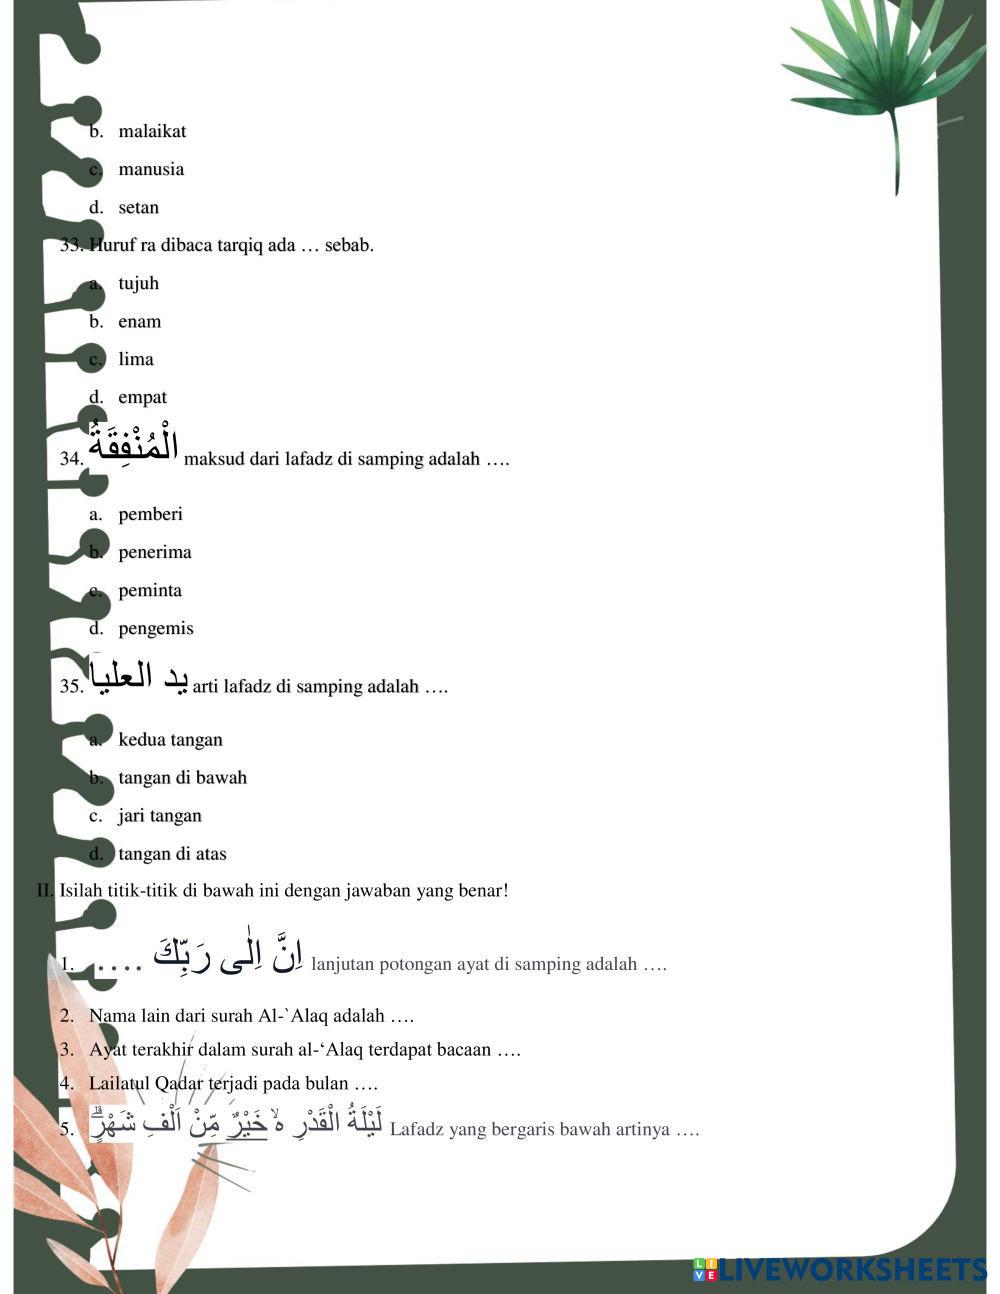 b. malaikat
c. manusia
d. setan
33. Huruf ra dibaca tarqiq ada … sebab.
a. tujuh
b. enam
c. lima
d. empat
34. الْمُنْفِقَةُ maksud dari lafadz di samping adalah ….
a. pemberi
b. penerima
c. peminta
d. pengemis
35. يد العليا arti lafadz di samping adalah ….
a. kedua tangan
b. tangan di bawah
c. jari tangan
d. tangan di atas
II. Isilah titik-titik di bawah ini dengan jawaban yang benar!
1. اِنَّ اِلٰى رَبِّكَ .... lanjutan potongan ayat di samping adalah ….
2. Nama lain dari surah Al-`Alaq adalah ….
3. Ayat terakhir dalam surah al-‘Alaq terdapat bacaan ….
4. Lailatul Qadar terjadi pada bulan ….
5. لَيْلَةُ الْقَدْرِ ەۙ خَيْرٌ مِّنْ اَلْفِ شَهْرٍۗ Lafadz yang bergaris bawah artinya ….
LIVEWORKSHEETS